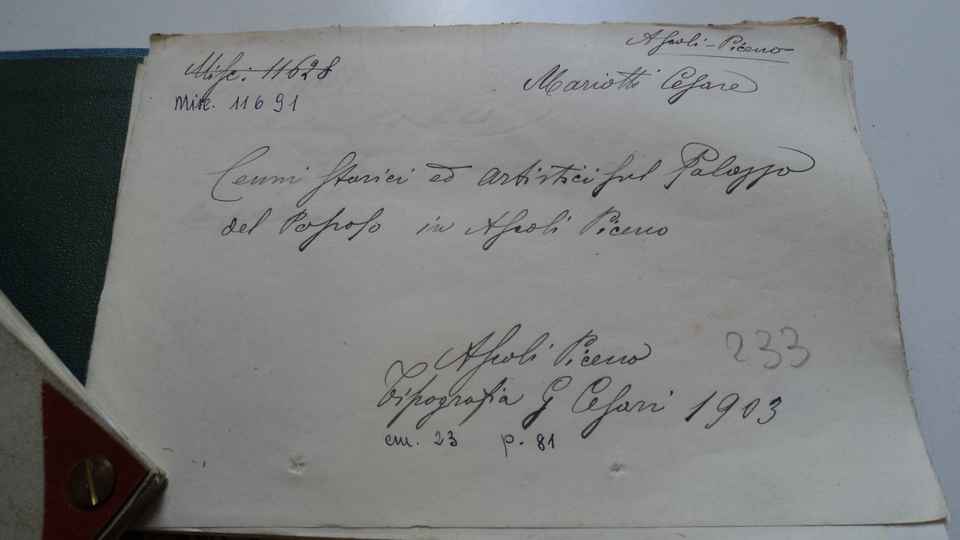 Ascoli-Piceno
Misc. 11628
Mariotti Cesare
Misc. 11691
Cenni storici ed artistici sul Palazzo
del Popolo in Ascoli Piceno
Ascoli Piceno
233
Tipografia G Cesari 1903
cm. 23 p. 81